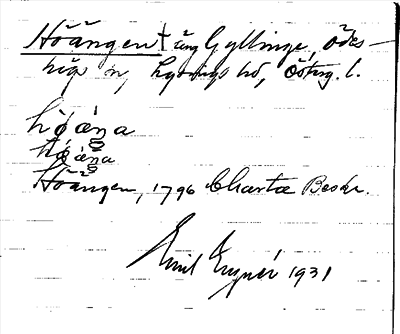 Höängen † äng Gyllinge, Ödes-
hög sn, Lysings hd, Österg. l.
hǿäŋa
hǿäŋa
Höängen, 1796 Charta Beskr.
Emil 1931